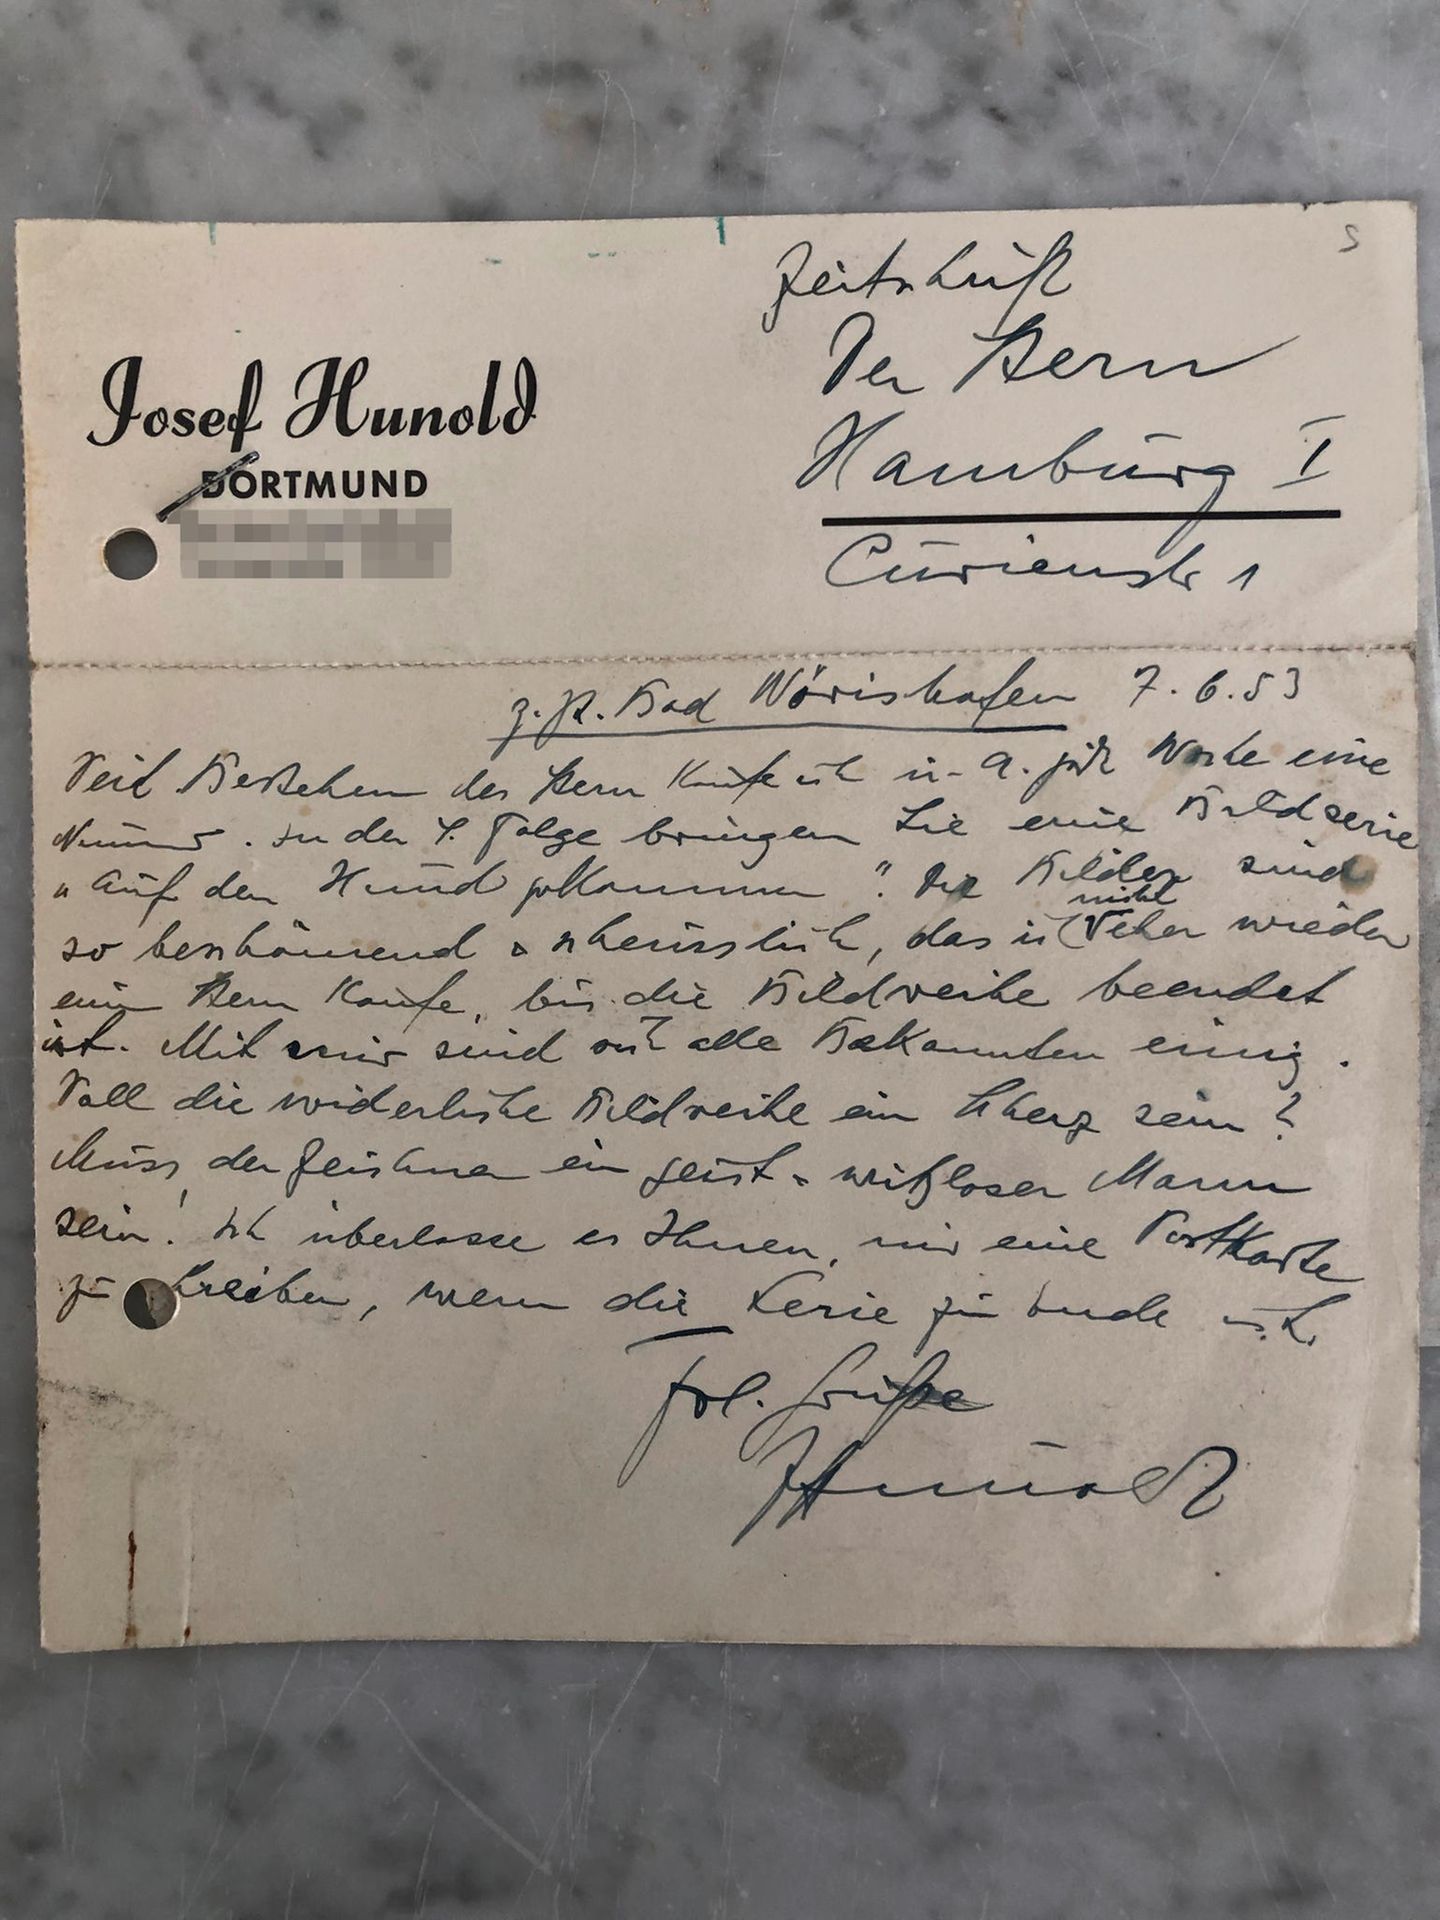 S
Zeitschrift
Der Stern
Hamburg I
Curienstr 1
Josef Hunold
DORTMUND
z. Zt. Bad Wörishofen 7.6.53
Seit Bestehen des Stern kaufe ich u. a. jede Woche eine
Nummer. In der 4. Folge bringen Sie eine Bildserie
"Auf den Hund gekommen". Die Bilder sind
so beschämend & scheusslich, das ich nicht eher wieder
ein Stern kaufe, bis die Bildreihe beendet
ist. Mit mir sind sich alle Bekannten einig.
Soll die widerliche Bildreihe ein Scherz sein?
Muss der Zeichner ein geist- & witzloser Mann
sein! Ich überlasse es Ihnen, mir eine Postkarte
zu schreiben, wenn die Serie zu Ende ist.
Frdl. Grüße
JHunold